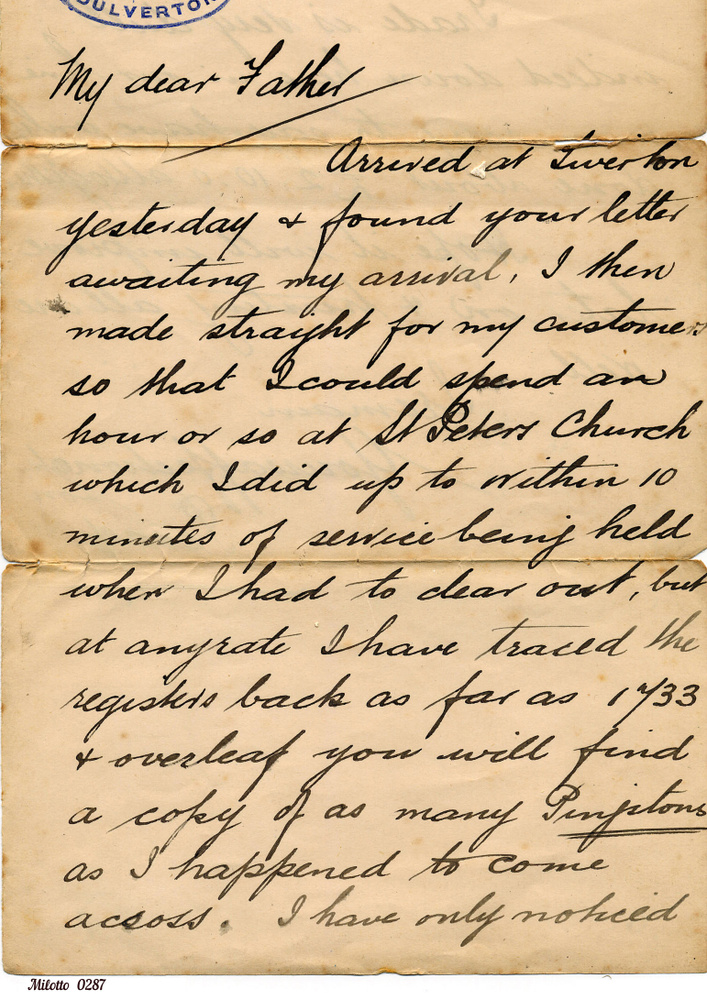 DULVERTON
My dear Father
Arrived at Tiverton
yesterday & found your letter
awaiting my arrival, I then
made straight for my customers
so that I could spend an
hour or so at St Peters Church
which I did up to within 10
minutes of service being held
when I had to clear out, but
at anyrate I have traced the
registers back as far as 1733
& overleaf you will find
a copy of as many Pinfitons
as I happened to come
acsoss. I have only noticed
Milotto 0287